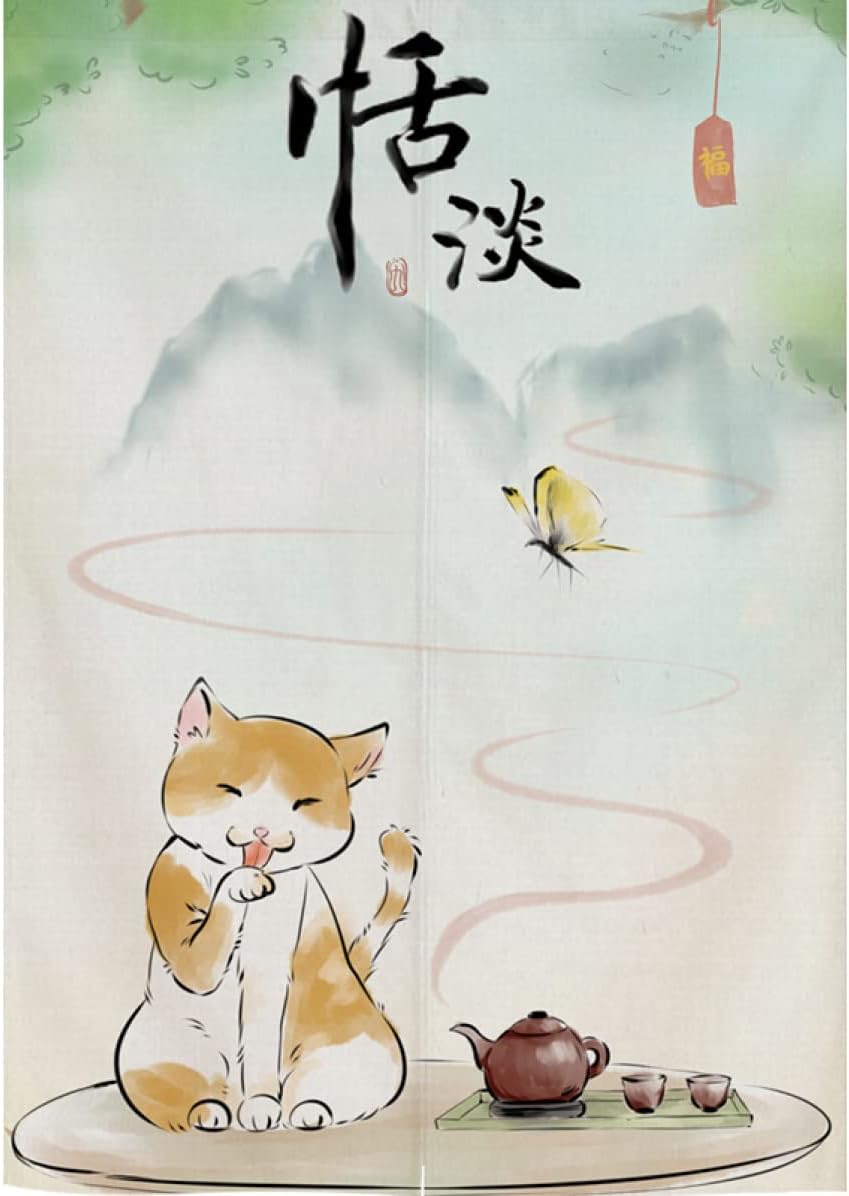 恬淡
福